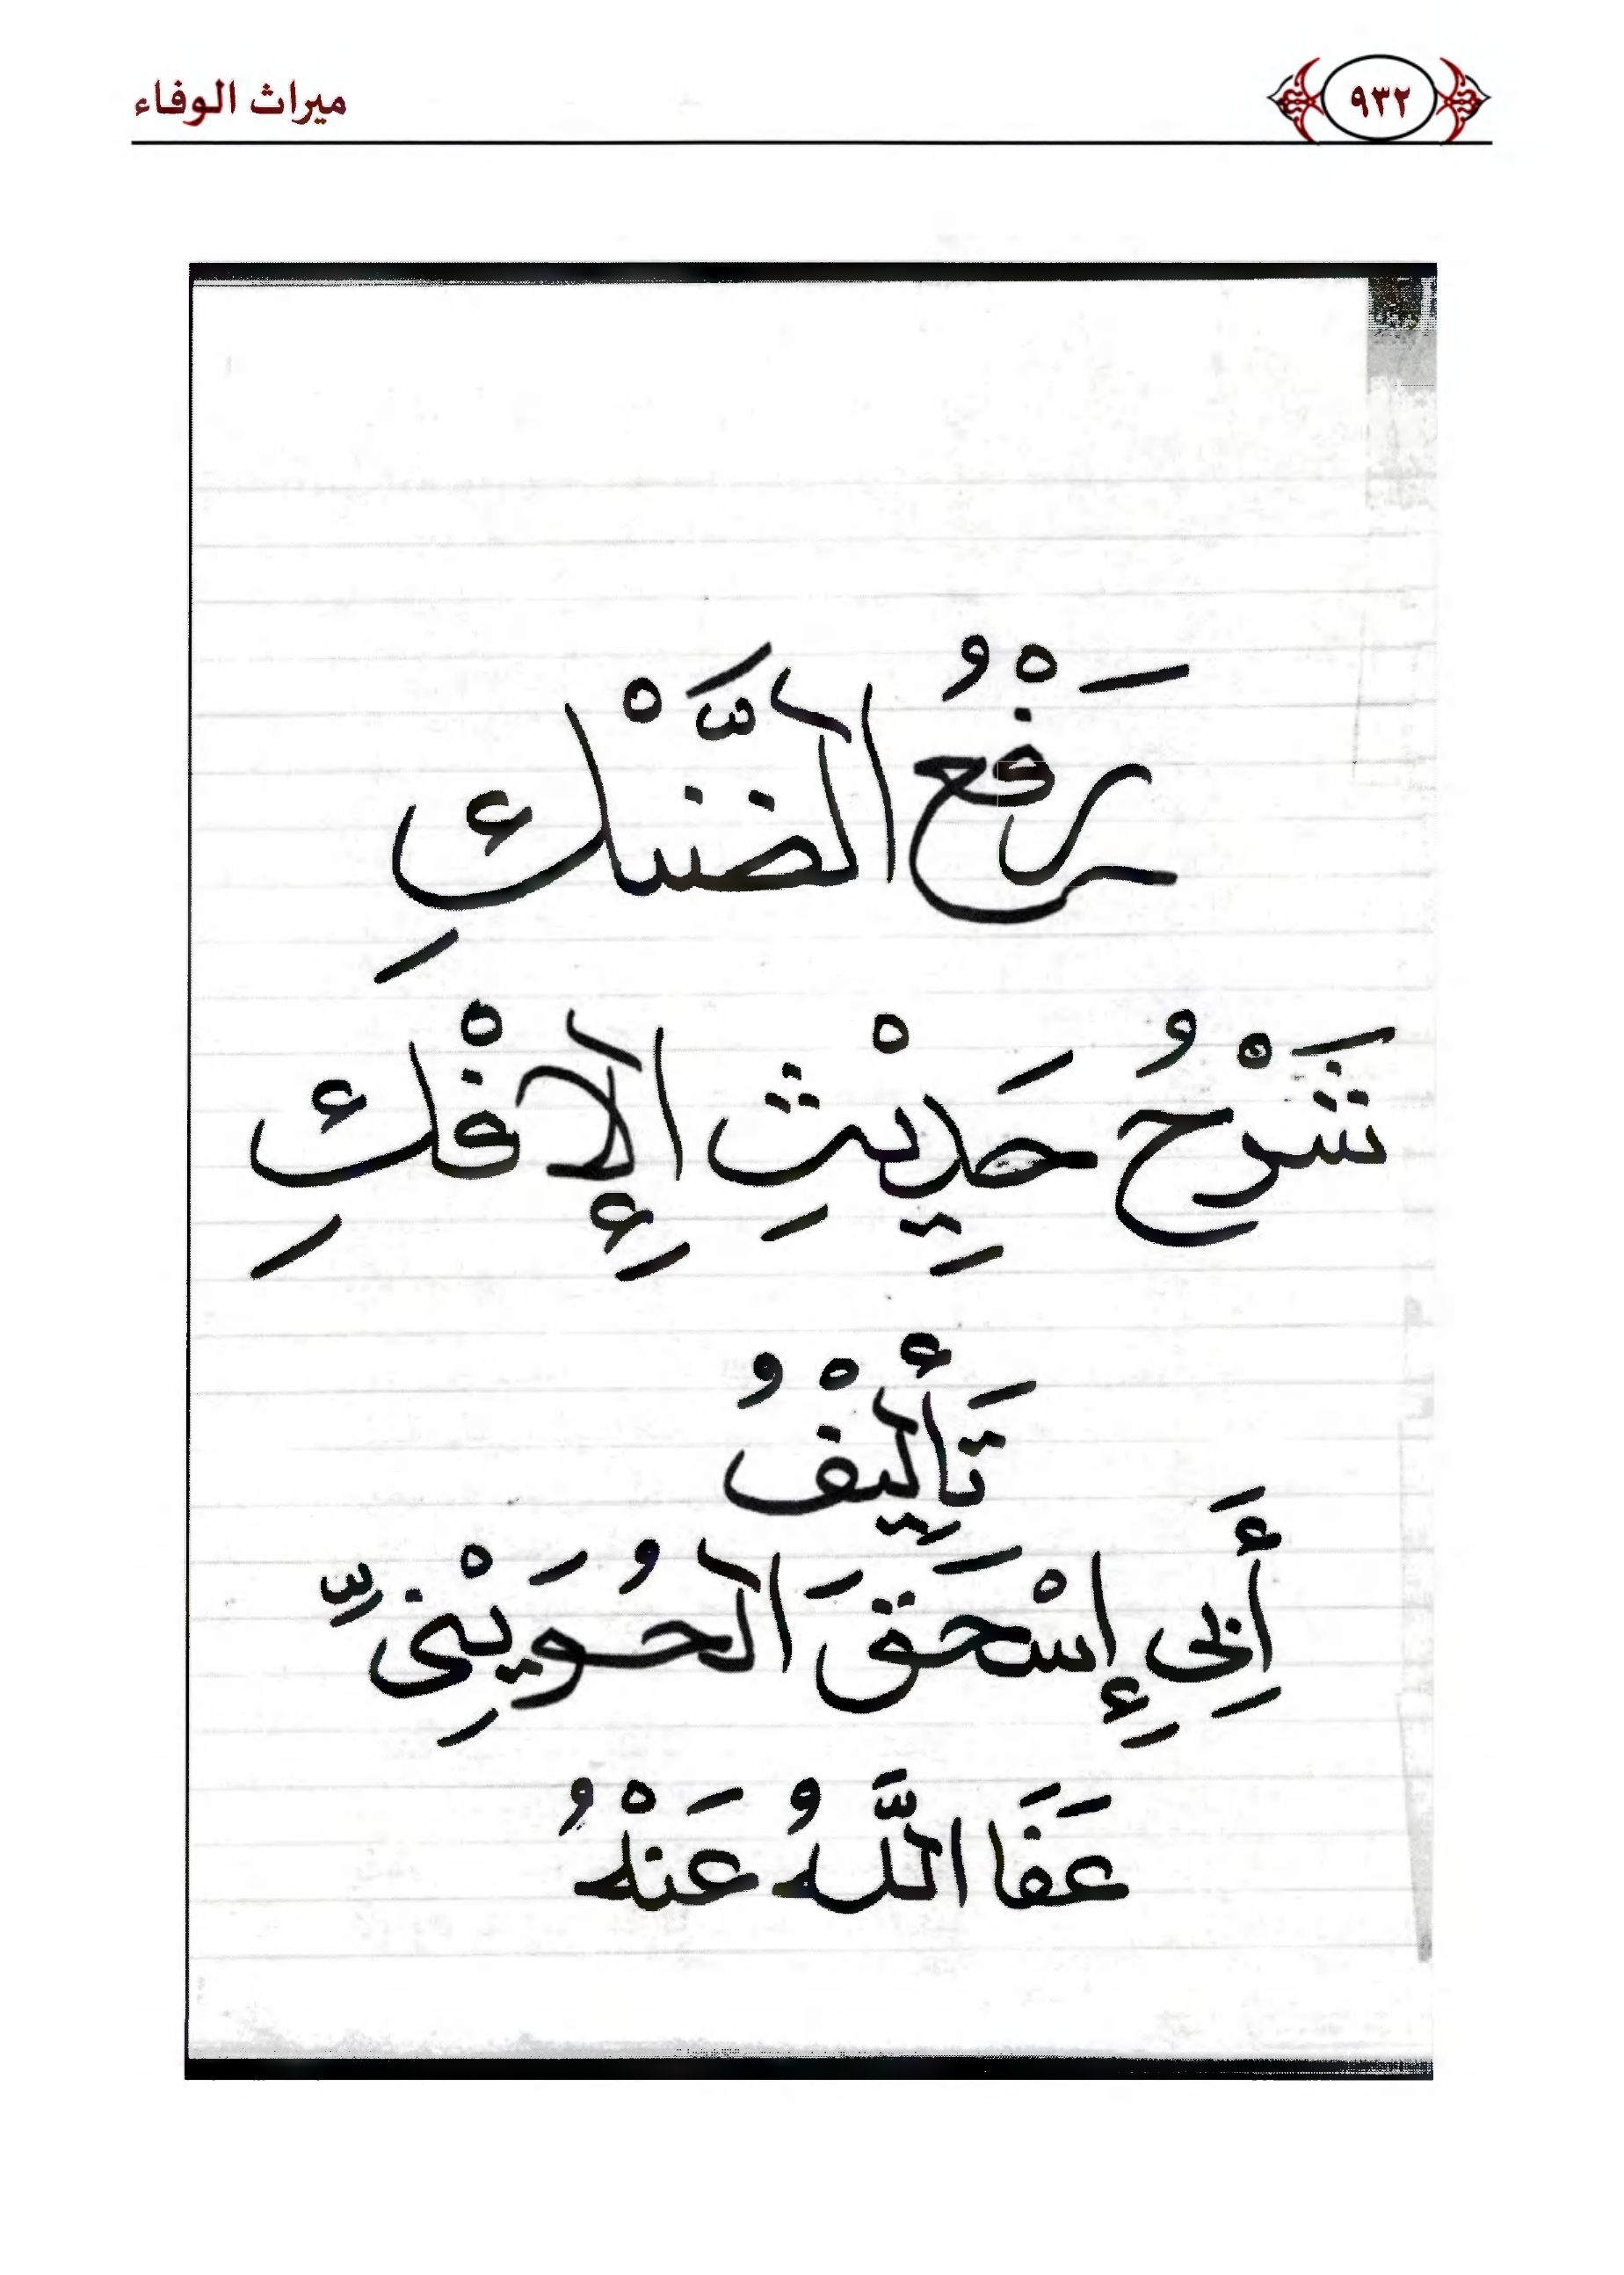 ٩٣٢ ميراث الوفاء
رَفْعُ الضَّنْكِ
شَرْحُ حَدِيْثِ الإِفْكِ
تَأْلِيْفُ
أَبِي إِسْحَقَ الحُوَيْنِيِّ
عَفَا اللَّهُ عَنْهُ